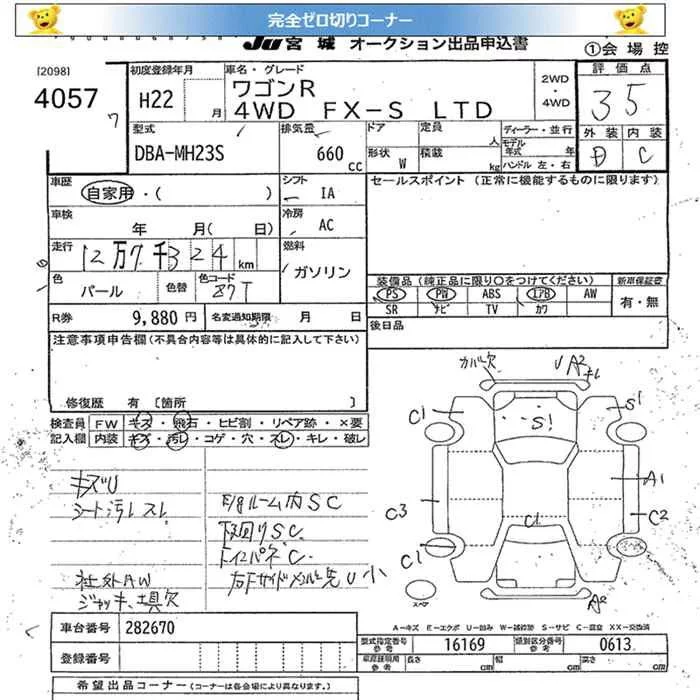 完全ゼロ切りコーナー
JU 宮城 オークション出品申込書
①会場控
[2098]
4057
7
初度登録年月
H22 月
車名・グレード
ワゴンR
4WD FX-S LTD
2WD
・4WD
評価点
3 5
型式
DBA-MH23S
排気量
660 cc
ドア
形状 W
定員 人
積載 kg
ディーラー・並行
モデル年式 年
ハンドル 左・右
外装 内装
D C
車歴
自家用・( )
シフト
IA
セールスポイント (正常に機能するものに限ります)
車検
年 月( 日)
冷房
AC
走行
12万7千324 km
燃料
ガソリン
色
パール
色替
色コード
Z7T
装備品(純正品に限り○をつけてください)
新車保証書
PS PW ABS エアB AW
SR ナビ TV カワ
有・無
R券
9,880 円
名変通知期限 月 日
後日品
注意事項申告欄(不具合内容等は具体的に記入して下さい)
修復歴 有 [箇所 ]
検査員
記入欄
FW キズ・飛石・ヒビ割・リペア跡・×要
内装 キズ・汚レ・コゲ・穴・スレ・キレ・破レ
キズU
シート汚レスレ
E/gルーム内SC
下廻りSC
トイコパネC
右下サイドメンバー先U小
社外AW
ジャッキ、填欠
カバー欠
UA2キレ
C1
S1
S!
A1
C3
C2
C1
C1
A2
スペア
A-キズ E-エクボ U-凹み W-補修跡 S-サビ C-腐食 XX-交換済
車台番号
282670
登録番号
型式指定番号
参考
16169
類別区分番号
参考
0613
車庫証明用
参考
長さ cm
幅 cm
高さ cm
希望出品コーナー(コーナーは各会場により異なります。)